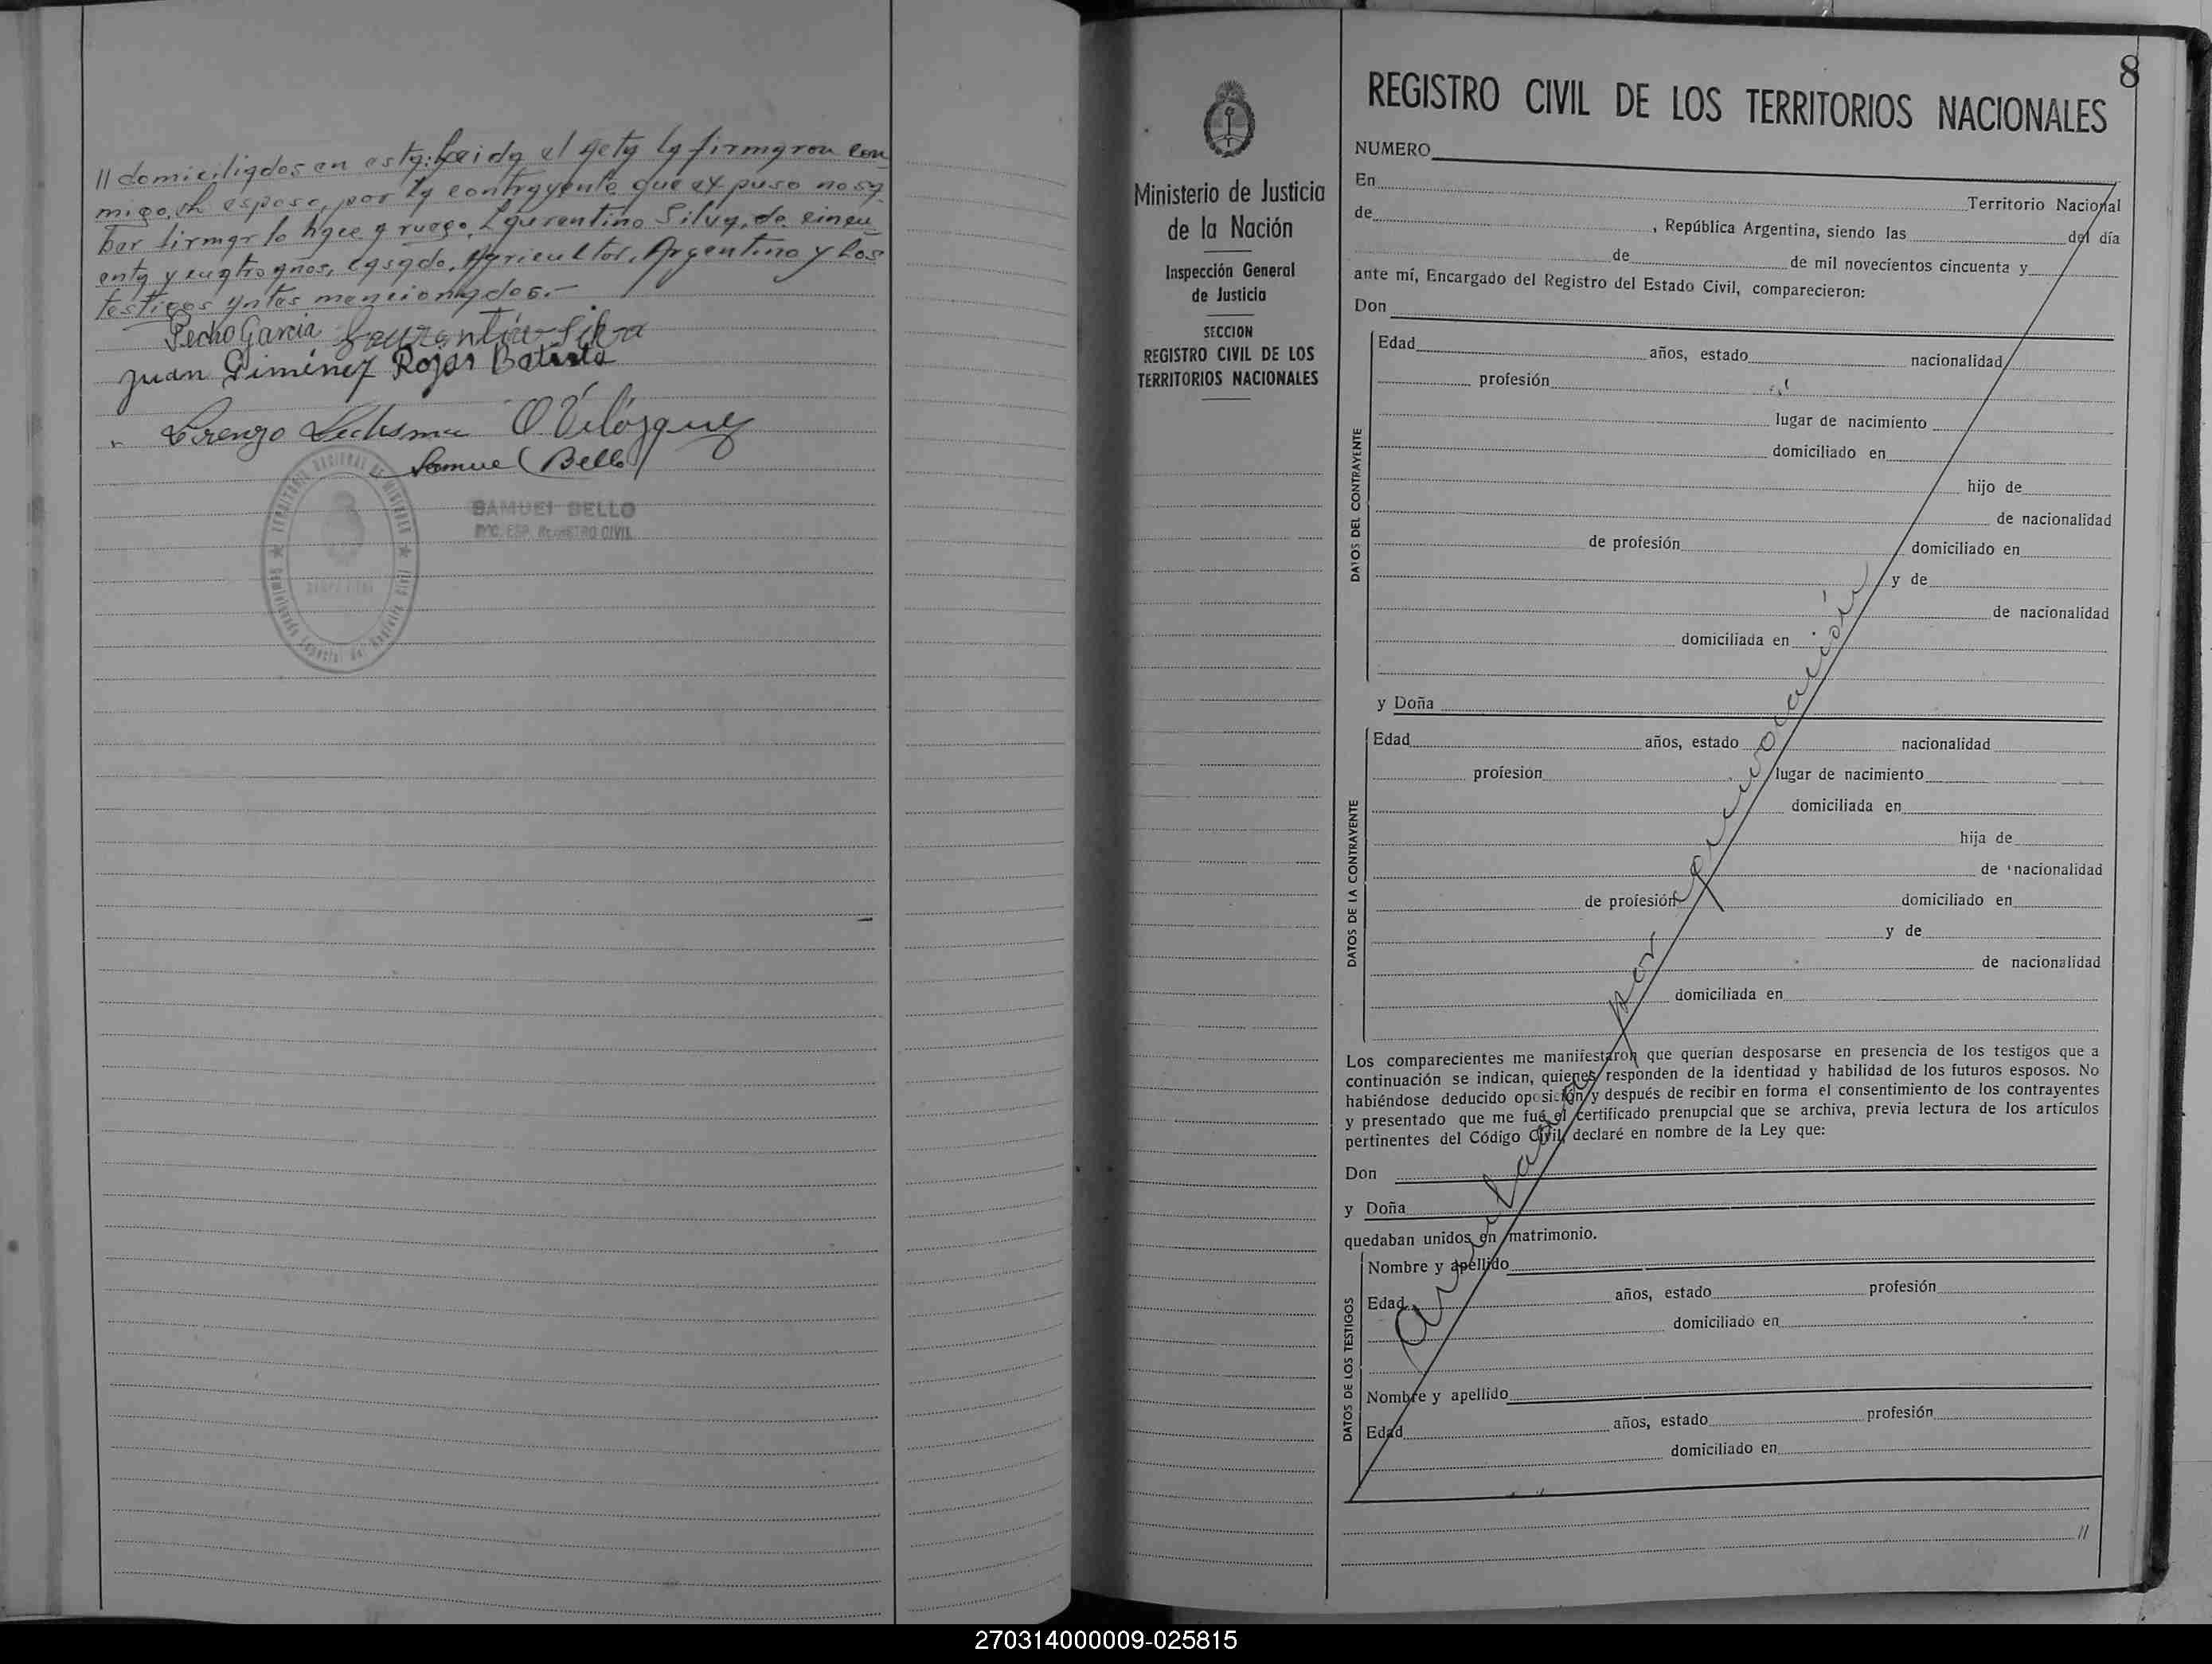 // domiciliados en esta: Leida el acta la firmaron con
migo, el esposo, por la contrayente que expuso no sa
ber firmar lo hace a ruego, Laurentino Silva, de cincu
enta y cuatro años, casado, Agricultor, Argentino y los
testigos antes mencionados.-
Pedro Garcia Laurentino Silva
Juan Giménez Rojas Batista
Lorenzo Ledesma O. Velázquez
Samuel Bello
TERRITORIO NACIONAL DE MISIONES
SAMUEL BELLO
ENC. ESP. REGISTRO CIVIL
8
Ministerio de Justicia
de la Nación
Inspección General
de Justicia
SECCION
REGISTRO CIVIL DE LOS
TERRITORIOS NACIONALES
REGISTRO CIVIL DE LOS TERRITORIOS NACIONALES
NUMERO
En Territorio Nacional
de , República Argentina, siendo las del día
de de mil novecientos cincuenta y
ante mí, Encargado del Registro del Estado Civil, comparecieron:
Don
DATOS DEL CONTRAYENTE
Edad años, estado nacionalidad
profesión
lugar de nacimiento
domiciliado en
hijo de
de nacionalidad
de profesión domiciliado en
y de
de nacionalidad
domiciliada en
y Doña
DATOS DE LA CONTRAYENTE
Edad años, estado nacionalidad
profesión lugar de nacimiento
domiciliada en
hija de
de nacionalidad
de profesión domiciliado en
y de
de nacionalidad
domiciliada en
Anulada por equivocación
Los comparecientes me manifestaron que querían desposarse en presencia de los testigos que a
continuación se indican, quienes responden de la identidad y habilidad de los futuros esposos. No
habiéndose deducido oposición y después de recibir en forma el consentimiento de los contrayentes
y presentado que me fué el certificado prenupcial que se archiva, previa lectura de los artículos
pertinentes del Código Civil, declaré en nombre de la Ley que:
Don
y Doña
quedaban unidos en matrimonio.
DATOS DE LOS TESTIGOS
Nombre y apellido
Edad años, estado profesión
domiciliado en
Nombre y apellido
Edad años, estado profesión
domiciliado en
//
270314000009-025815